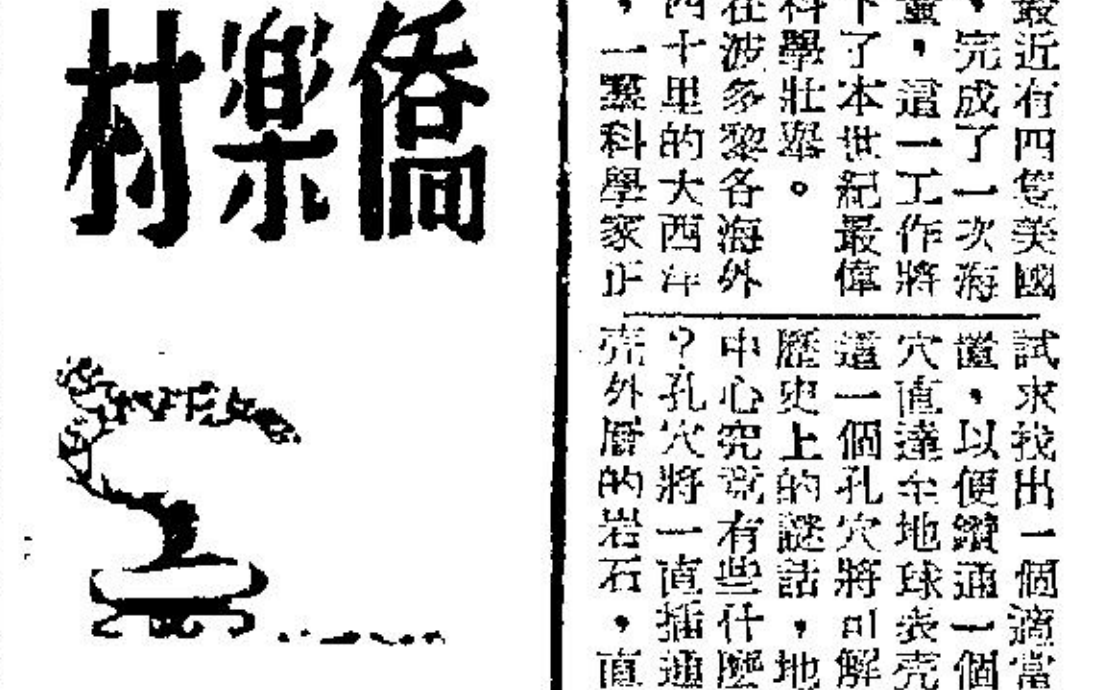 最近有四隻美國
，完成了一次海
量，這一工作將
下了本世紀最偉
科學壯舉。
在波多黎各海外
四十里的大西洋
，一羣科學家正
試求找出一個適當
置，以便鑽通一個
穴直達至地球表壳
這一個孔穴將可解
歷史上的謎話，地
中心究竟有些什麼
？孔穴將一直插通
壳外層的岩石，直
僑樂村